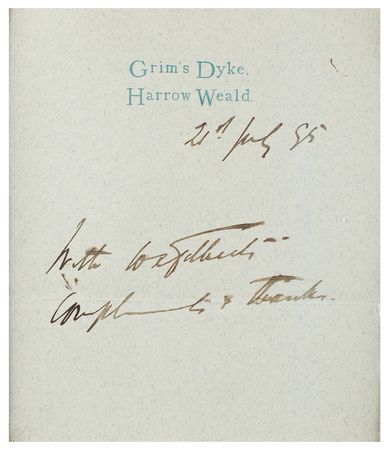 Grim's Dyke,
Harrow Weald.
21st July 95
With WSGilbert's
Compliments & thanks.